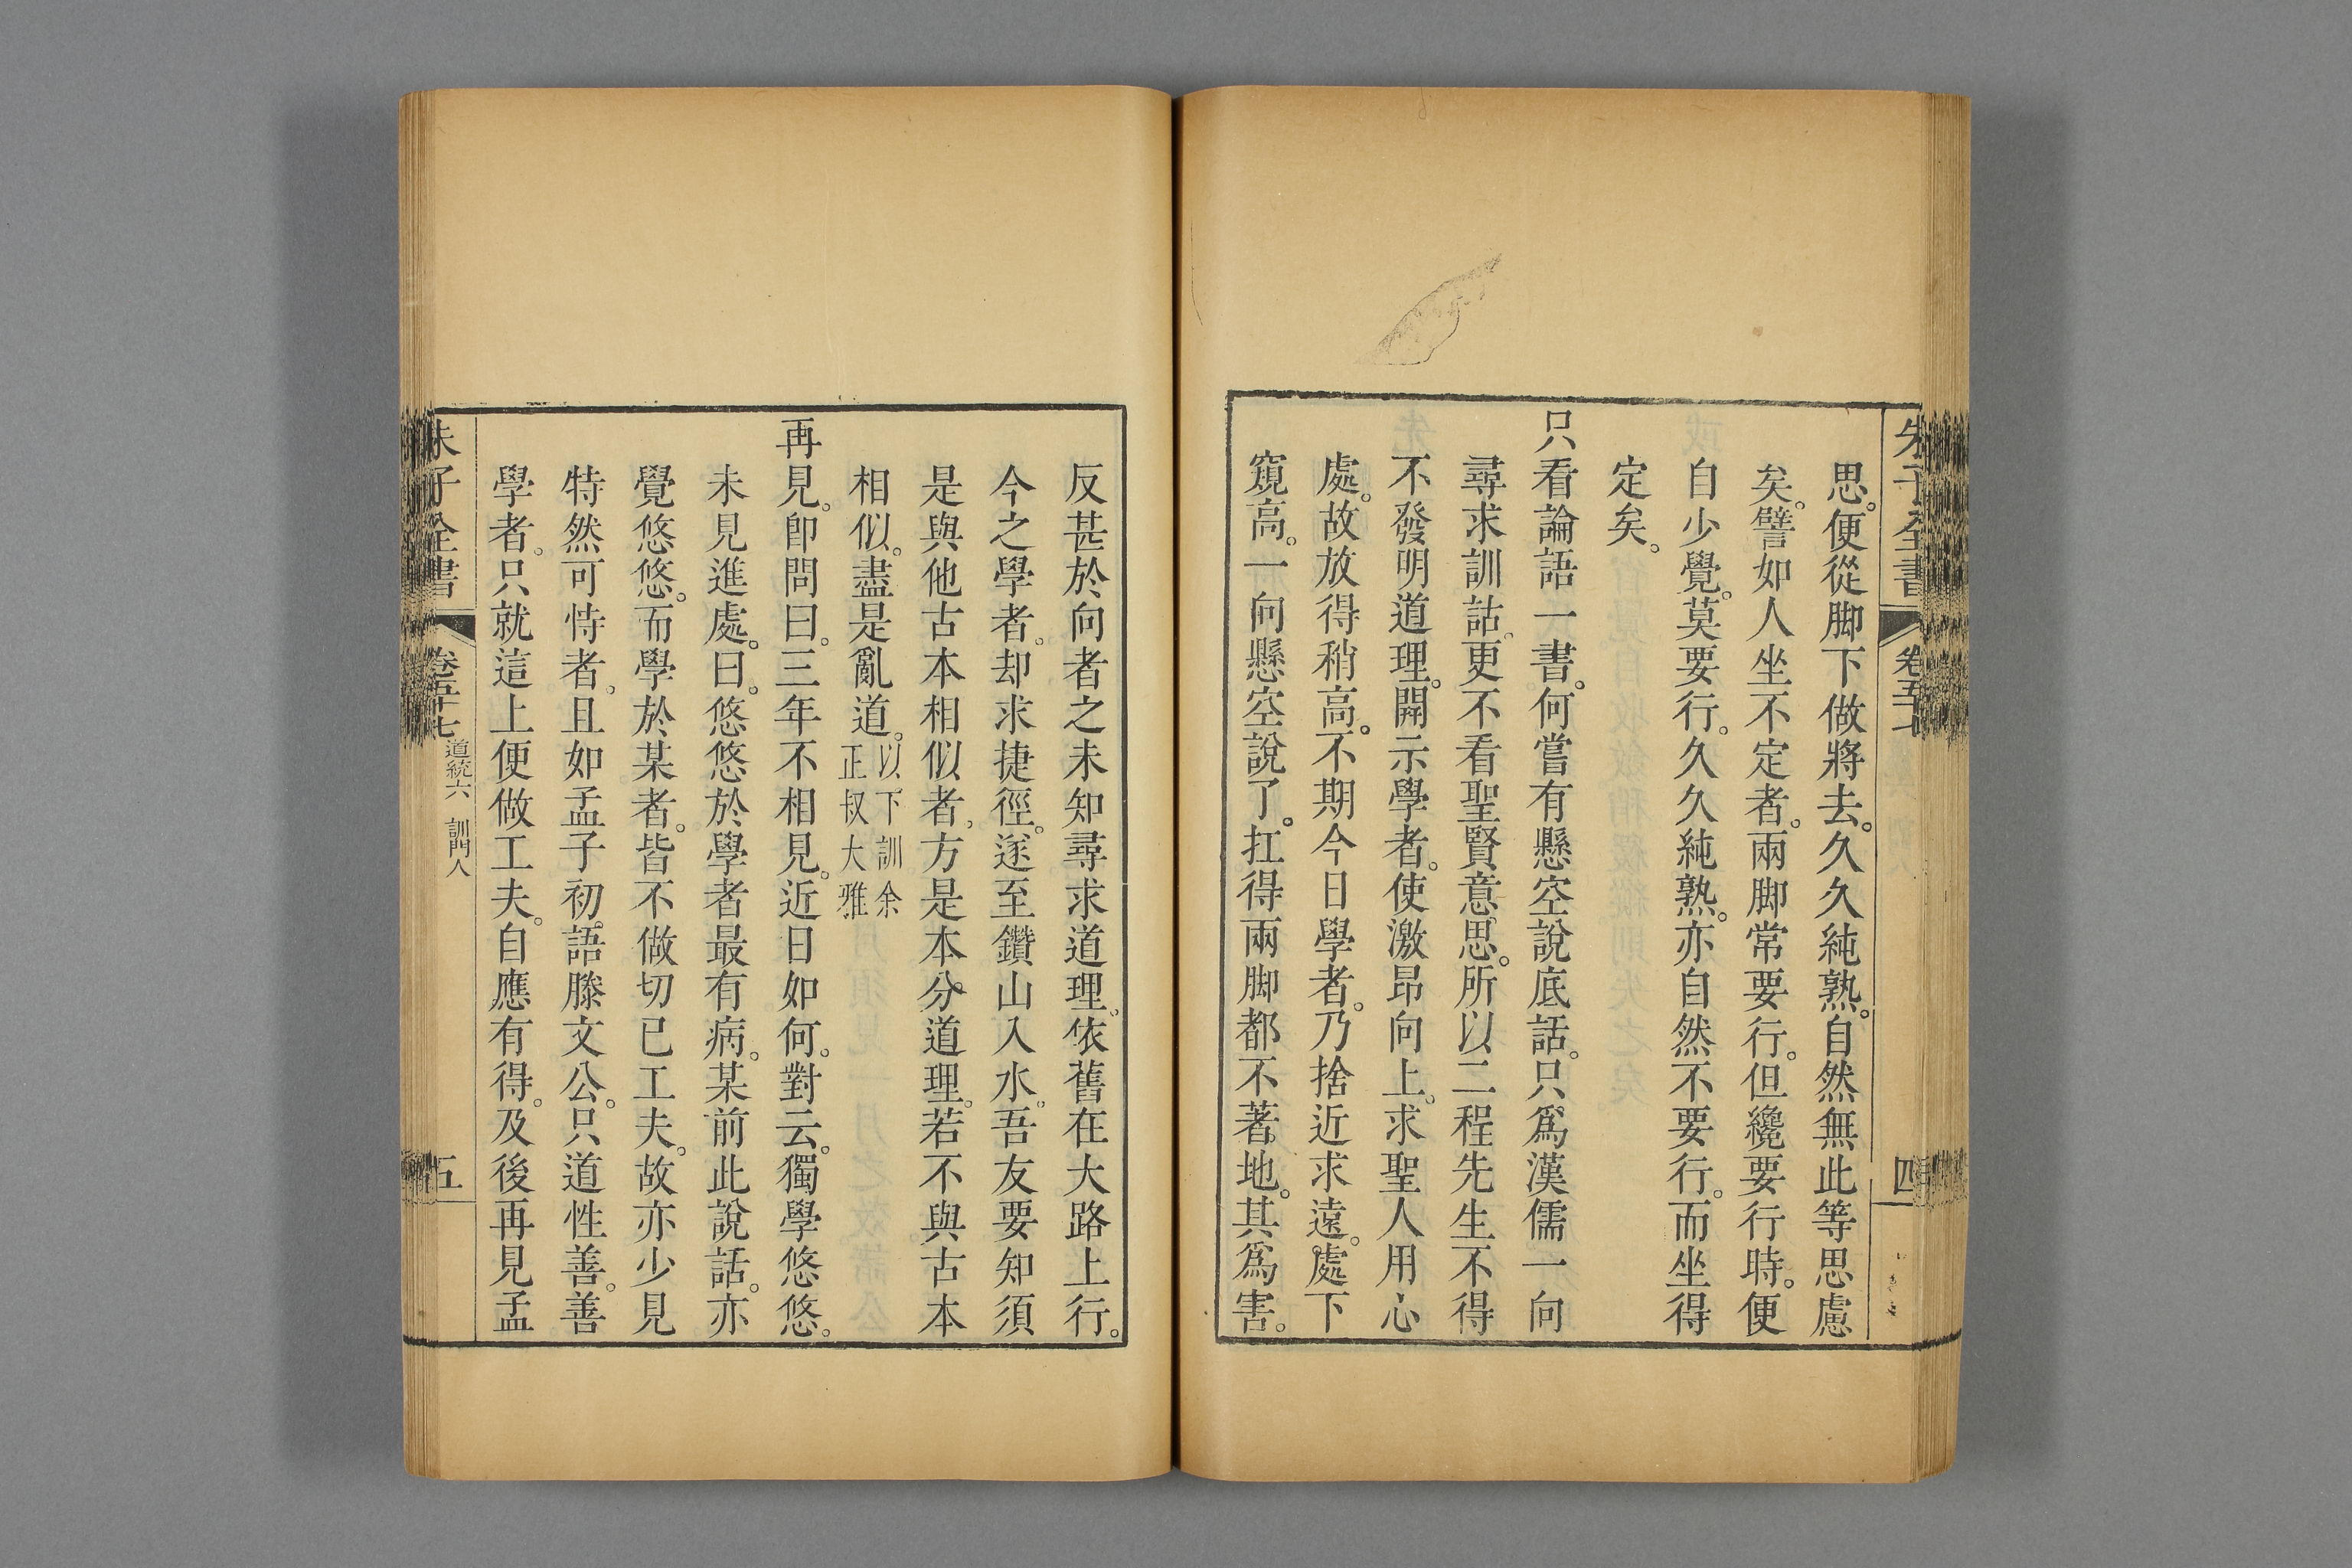 朱子全書 卷五十七 四
思。便從脚下做將去。久久純熟。自然無此等思慮
矣。譬如人坐不定者。兩脚常要行。但纔要行時。便
自少覺。莫要行。久久純熟。亦自然不要行。而坐得
定矣。
只看論語一書。何嘗有懸空說底話。只爲漢儒一向
尋求訓詁。更不看聖賢意思。所以二程先生不得
不發明道理。開示學者。使激昂向上。求聖人用心
處。故放得稍高。不期今日學者。乃捨近求遠。處下
窺高。一向懸空說了。扛得兩脚都不著地。其爲害。
反甚於向者之未知尋求道理。依舊在大路上行。
今之學者。却求捷徑。遂至鑽山入水。吾友要知須
是與他古本相似者。方是本分道理。若不與古本
相似。盡是亂道。以下訓余正叔大雅
再見。卽問曰。三年不相見。近日如何。對云。獨學悠悠。
未見進處。曰。悠悠於學者最有病。某前此說話。亦
覺悠悠。而學於某者。皆不做切已工夫。故亦少見
特然可恃者。且如孟子初語滕文公。只道性善。善
學者。只就這上便做工夫。自應有得。及後再見孟
朱子全書 卷五十七 道統六 訓門人 五